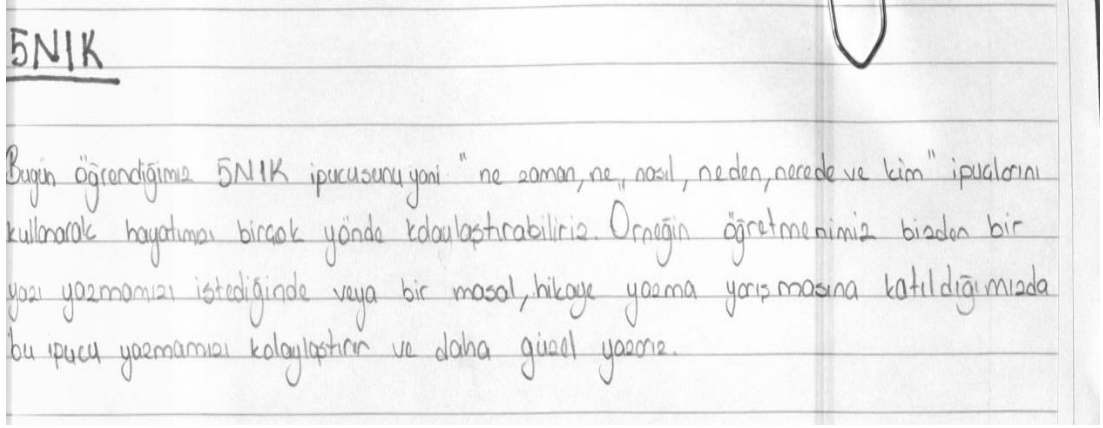 5N1K
Bugün öğrendiğimiz 5N1K ipucusunu yani "ne zaman, ne, nasıl, neden, nerede ve kim" ipuçlarını
kullanarak hayatımızı birçok yönde kolaylaştırabiliriz. Örneğin öğretmenimiz bizden bir
yazı yazmamızı istediğinde veya bir masal, hikaye yazma yarışmasına katıldığımızda
bu ipucu yazmamızı kolaylaştırır ve daha güzel yazarız.